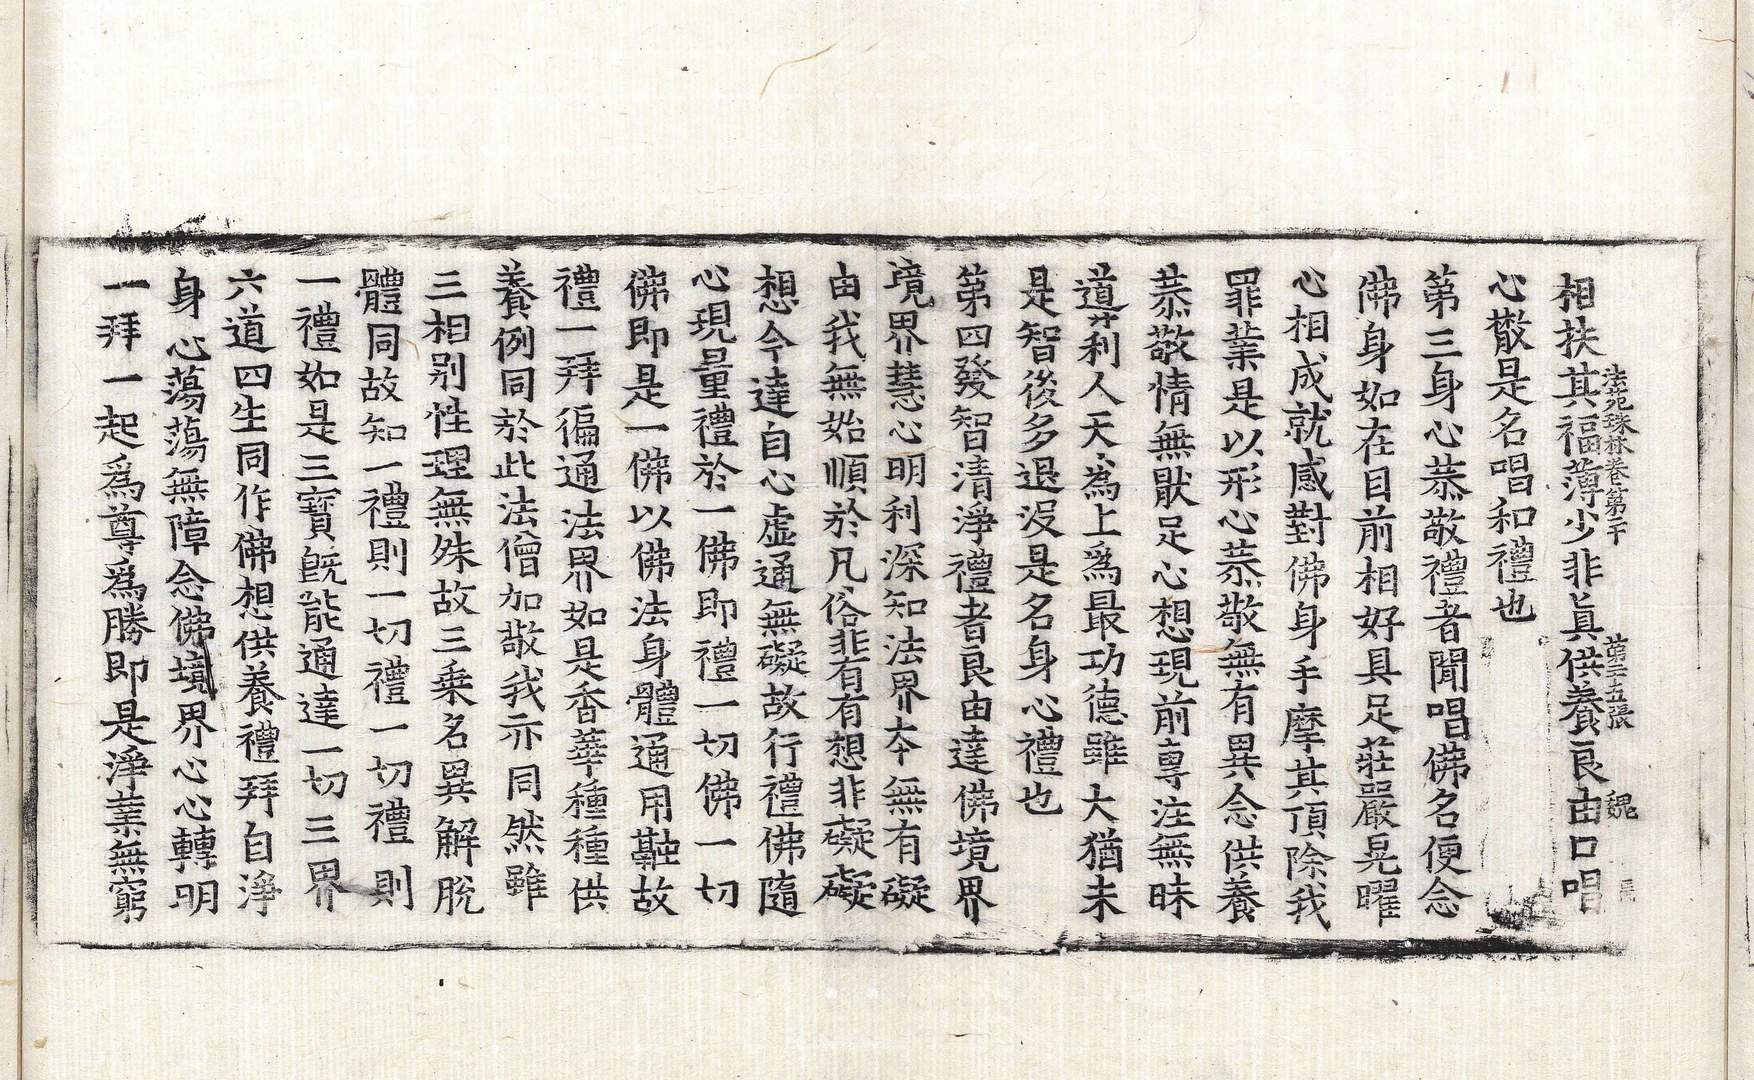 法苑珠林卷第二十 第二十五張 魏
相扶其福薄少非真供養良由口唱
心散是名唱和禮也
第三身心恭敬禮者聞唱佛名便念
佛身如在目前相好具足莊嚴晃曜
心相成就感對佛身手摩其頂除我
罪業是以形心恭敬無有異念供養
恭敬情無厭足心想現前專注無昧
導利人天為上為最功德雖大猶未
是智後多退沒是名身心禮也
第四發智清淨禮者良由達佛境界
境界慧心明利深知法界本無有礙
由我無始順於凡俗非有有想非礙礙
想今達自心虛通無礙故行禮佛隨
心現量禮於一佛即禮一切佛一切
佛即是一佛以佛法身體通用融故
禮一拜徧通法界如是香華種種供
養例同於此法僧加敬我亦同然雖
三相別性理無殊故三乘名異解脫
體同故知一禮則一切禮一切禮則
一禮如是三寶既能通達一切三界
六道四生同作佛想供養禮拜自淨
身心蕩蕩無障念佛境界心心轉明
一拜一起為尊為勝即是淨業無窮